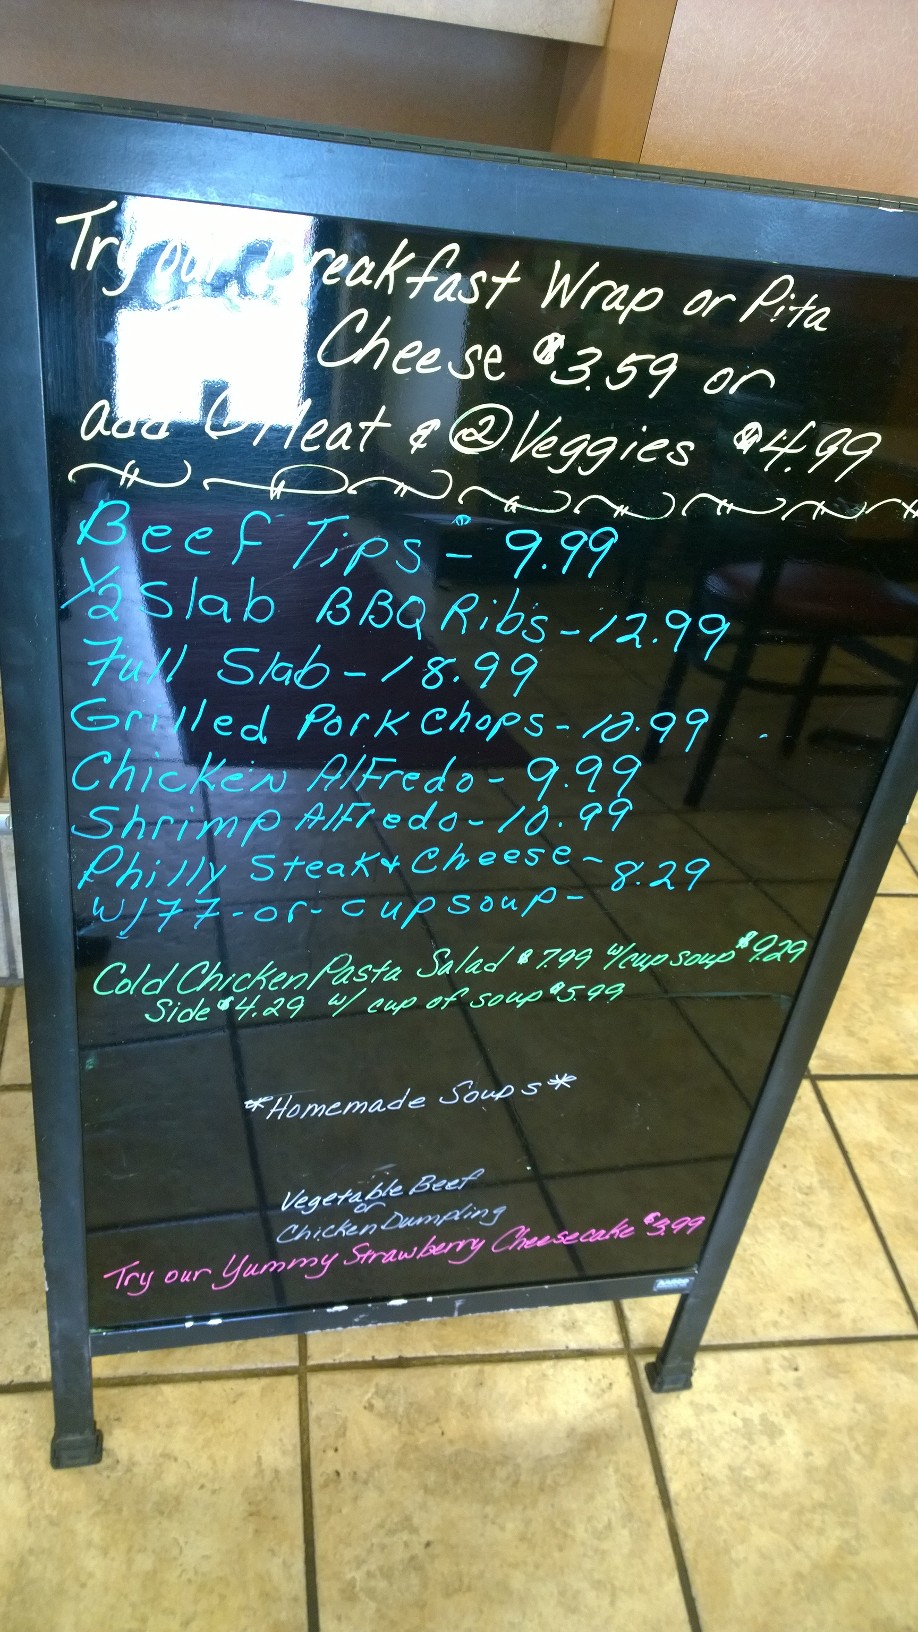 Try our Breakfast Wrap or Pita
Cheese $3.59 or
add 1 Meat & 2 Veggies $4.99
Beef Tips - 9.99
1/2 Slab BBQ Ribs - 12.99
Full Slab - 18.99
Grilled Pork Chops - 10.99
Chicken Alfredo - 9.99
Shrimp Alfredo - 10.99
Philly Steak & Cheese - 8.29
w/ FF - or - cup soup -
Cold Chicken Pasta Salad $7.99 w/cup soup $9.29
Side $4.29 w/ cup of soup $5.99
*Homemade Soups*
Vegetable Beef
or
Chicken Dumpling
Try our Yummy Strawberry Cheesecake $3.99